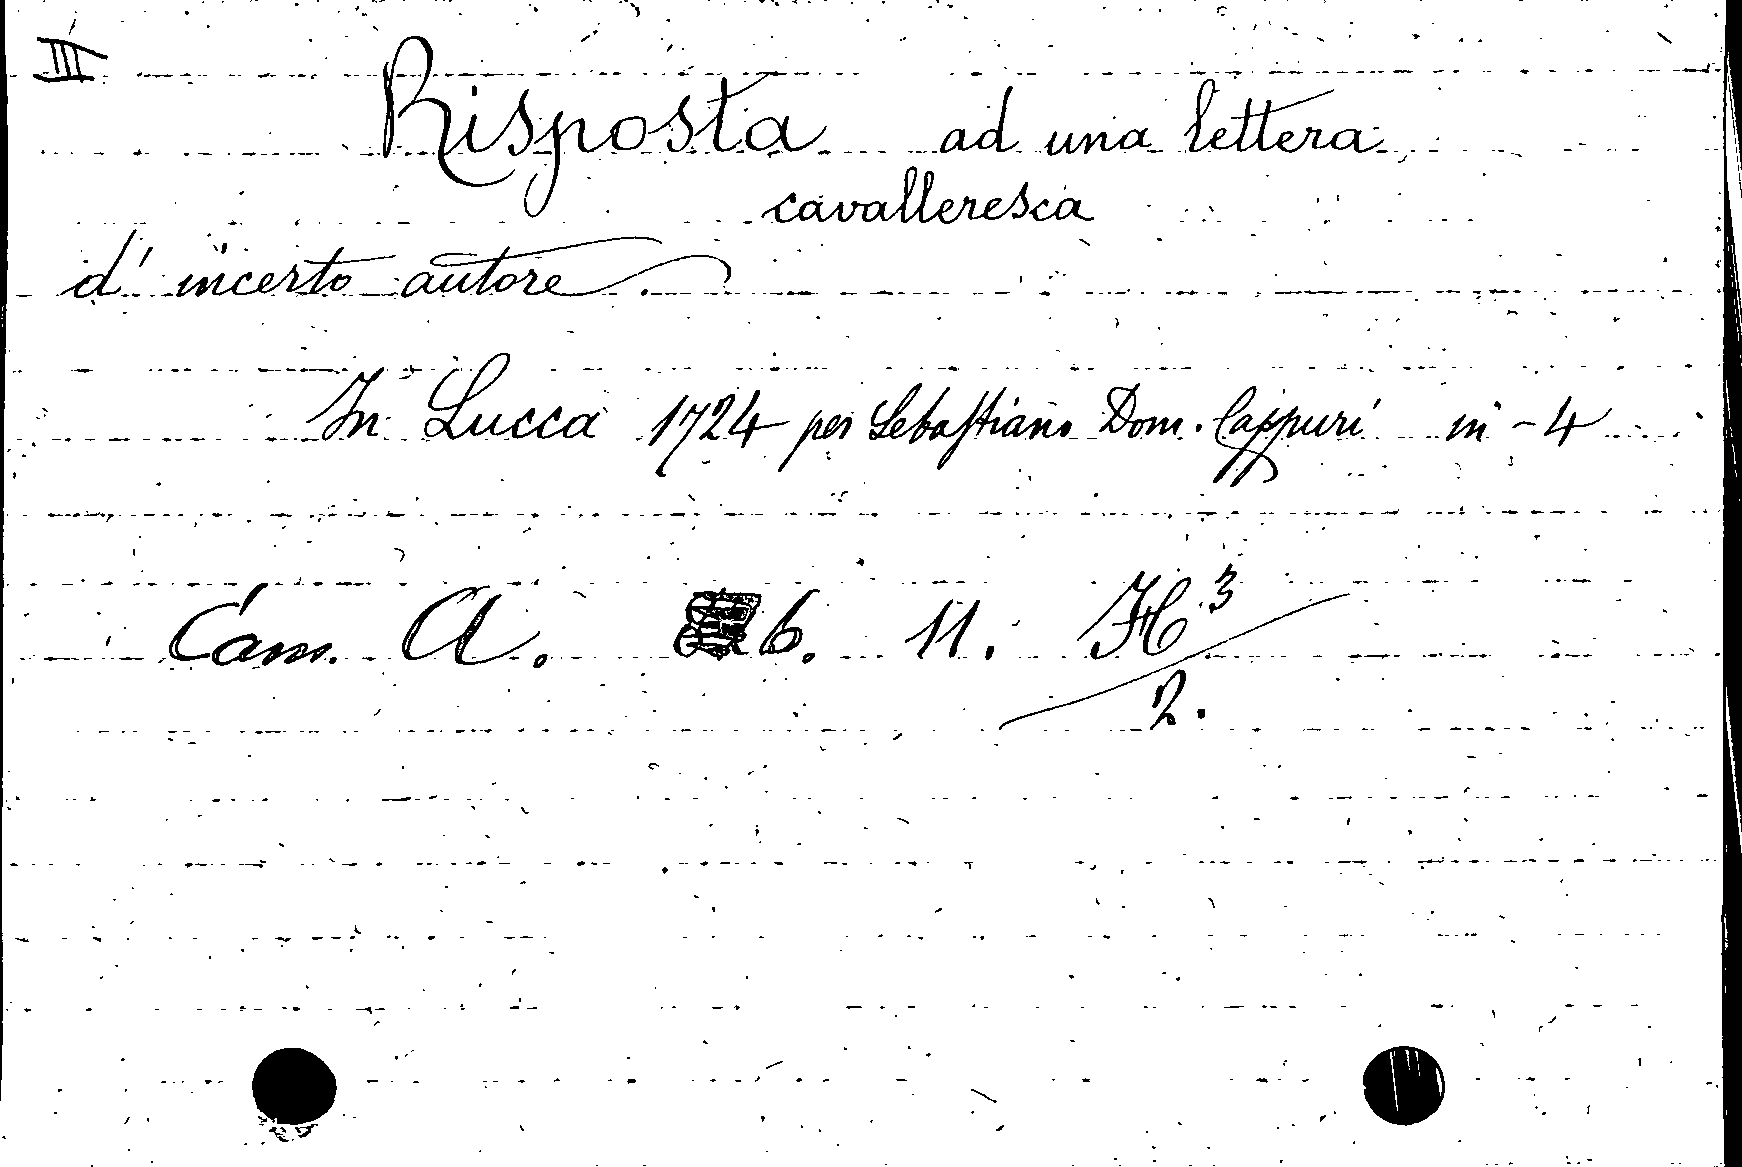 III
Risposta ad una lettera
cavalleresca
d' incerto autore.
In Lucca 1724 per Sebastiano Dom. Cappuri in-4
Cam. A. 6. 11. H³
2.